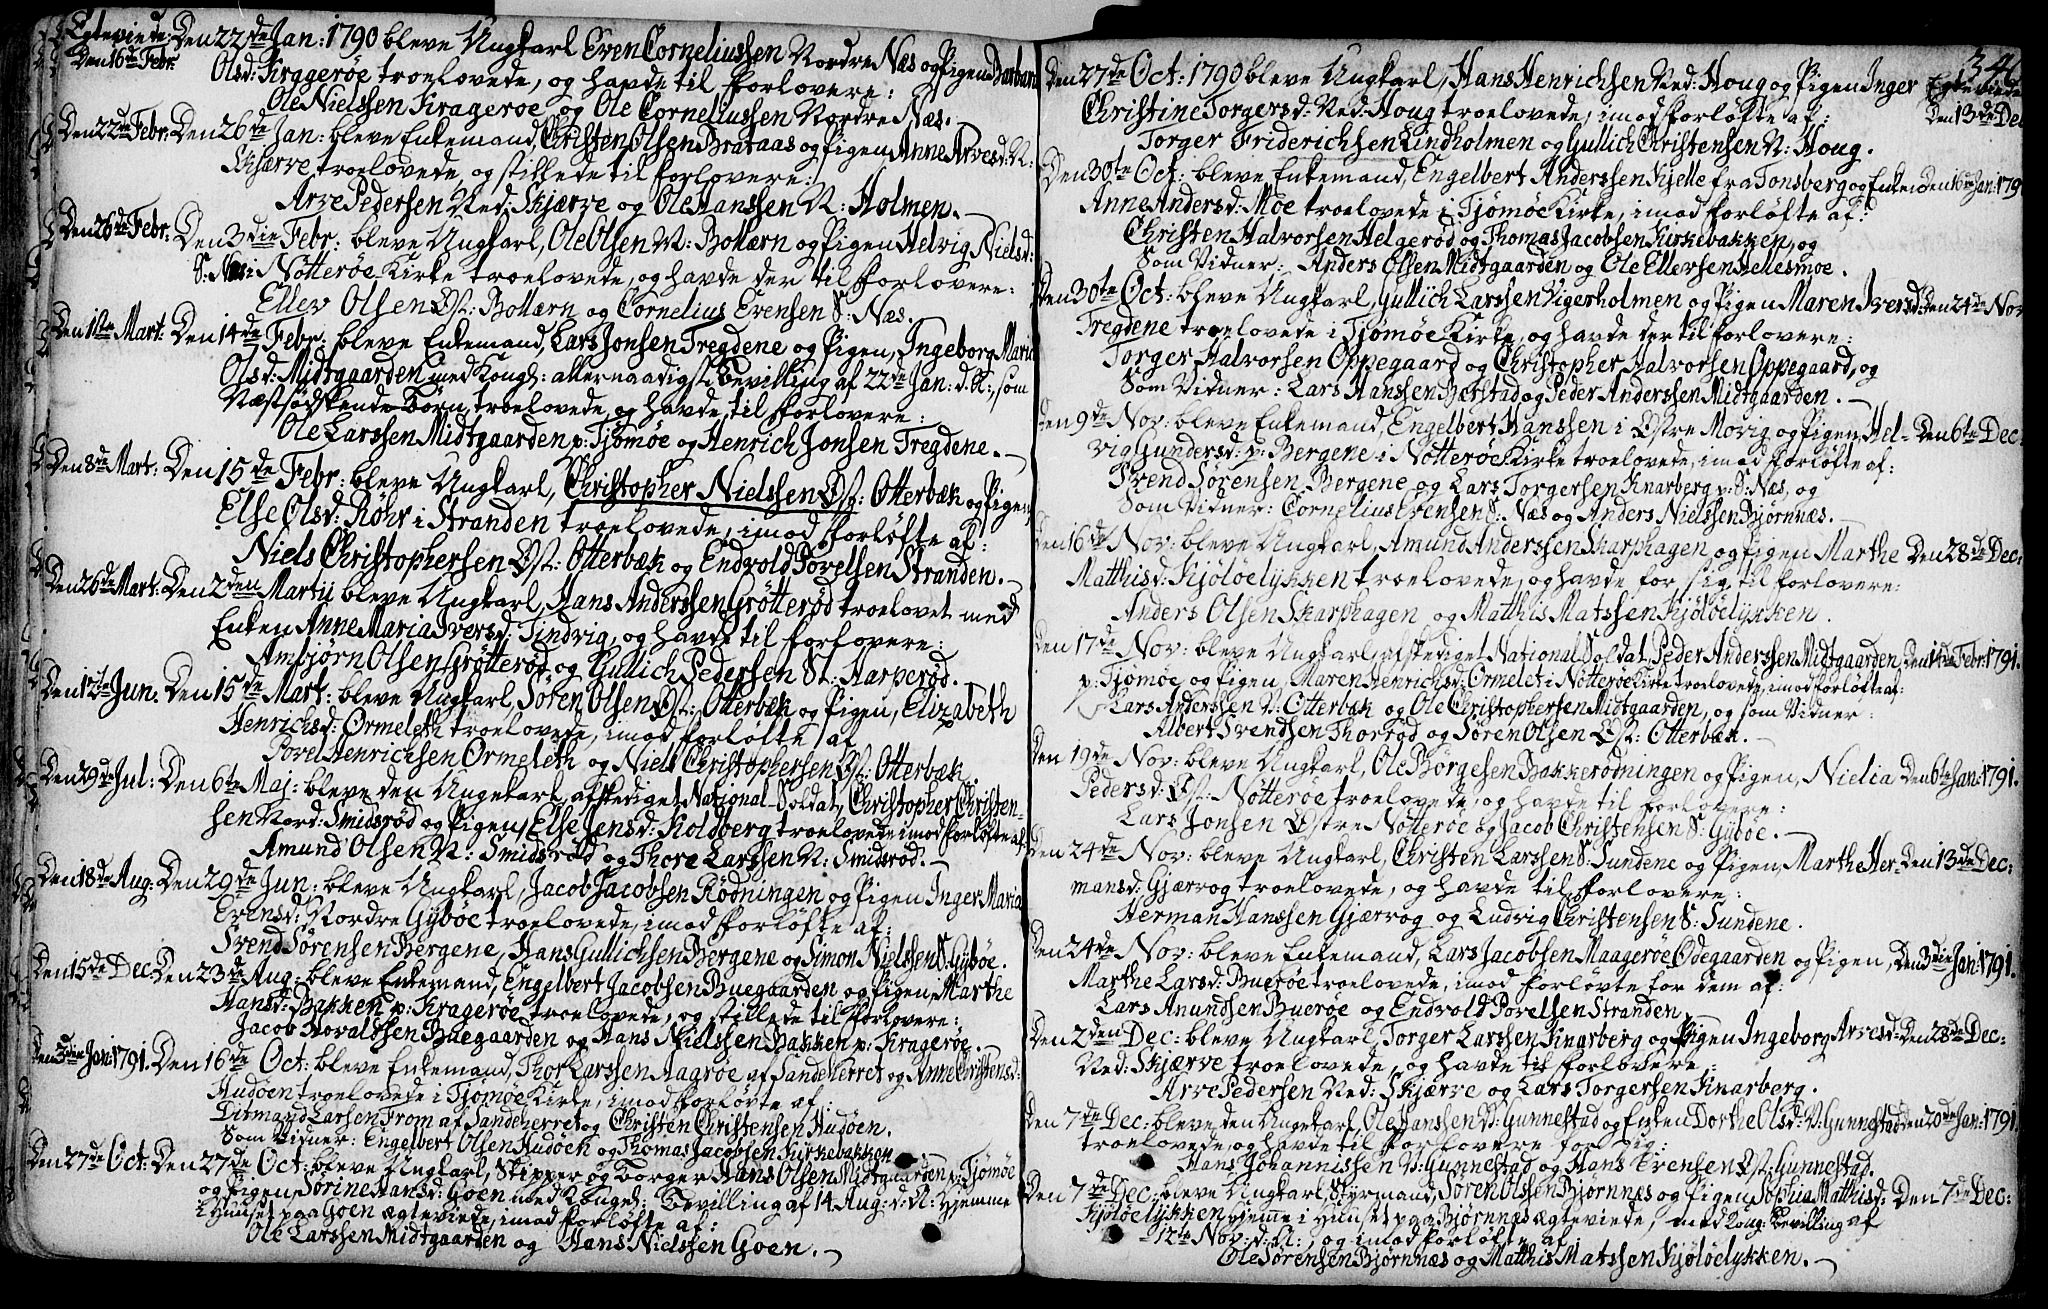 Egteviede: Den 22de Jan: 1790 bleve Ungkarl Even Corneliussen Nordre Næs og Pigen Barbara
Den 16de Febr: Olsd: Kraggerøe troelovede, og havde til Forlovere:
Ole Nielssen Kragerøe og Ole Corneliussen Nordre Næs.
Den 22de Febr: Den 26de Jan: bleve Enkemand, Christen Olsen Brataas og Pigen Anne Arvesd: N:
Skjærve troelovede, og stillede til Forlovere:
Arve Pedersen Ned: Skjærve og Ole Hanssen N: Holmen.
Den 26de Febr: Den 3die Febr: bleve Ungkarl, Ole Olsen N: Bollærn og Pigen Helvig Nielsd:
S: Næs i Nøtterøe Kirke troelovede, og havde der til Forlovere:
Ellev Olsen Øst: Bollærn og Cornelius Evensen S: Næs.
Den 1ste Mart: Den 14de Febr: bleve Enkemand, Lars Jonsen Tregdene og Pigen, Ingeborg Maria
Olsd: Midtgaarden med Kongl: allernaadigst Bevilling af 22de Jan: d: A:, som
Næstsødskende Børn troelovede, og havde til Forlovere:
Ole Larssen Midtgaarden p: Tjømøe og Henrich Jonsen Tregdene.
Den 8de Mart: Den 15de Febr: bleve Ungkarl, Christopher Nielssen Øst: Otterbæk og Pigen,
Else Olsd: Röhr i Stranden troelovede, imod Forløfte af:
Niels Christophersen Øst: Otterbæk og Endvold Povelsen Stranden.
Den 26de Mart: Den 2den Martii bleve Ungkarl, Hans Anderssen Grøtterød troelovet med
Enken Anne Maria Iversd: Tindvig, og havde til Forlovere:
Ambjørn Olsen Grøtterød og Gullich Pedersen St: Harperød.
Den 12te Jun: Den 15de Mart: bleve Ungkarl, Søren Olsen Øst: Otterbæk og Pigen, Elizabeth
Henrichsd: Ormeleth troelovede, imod Forløfte af
Povel Henrichsen Ormeleth og Niels Christophersen Øst: Otterbæk.
Den 29de Jul: Den 6te Maj: bleve den Ungekarl, afskediget National-Soldat, Christopher Christen-
sen Nord: Smidsrød og Pigen, Else Jensd: Koldberg troelovede imod Forløfte af
Amund Olsen N: Smidsrød og Thore Larssen N: Smidsrød.
Den 18de Aug: Den 29de Jun: bleve Ungkarl, Jacob Jacobsen Rødningen og Pigen Inger Maria
Evensd: Nordre Gÿbøe troelovede, imod Forløfte af:
Svend Sørensen Bergene, Hans Gullichsen Bergene og Simon Nielssen S: Gÿbøe.
Den 15de Dec: Den 23de Aug: bleve Enkemand, Engelbert Jacobsen Buegaarden og Pigen, Marthe
Hansd: Bakken p: Kragerøe troelovede, og stillede til Forlovere:
Jacob Hovaldssen Buegaarden og Hans Nielssen Bakken p: Kragerøe.
Den 3die Jan: 1791. Den 16de Oct: bleve Enkemand, Thor Larssen Aagrøe af Sandeherret og Anne Christensd:
Hudøen troelovede i Tjømøe Kirke, imod Forløvte af:
Ditmand Larssen From af Sandeherret og Christen Christensen Hudøen.
Som Vidner: Engelbert Olsen Hudøen og Thomas Jacobsen Kirkebakken
Den 27de Oct: Den 27de Oct: bleve Ungkarl, Skipper og Borger Hans Olsen Midtgaarden p: Tjømøe
og Pigen, Sørine Hansd: Goen med Kongel: Bevilling af 14 Aug: d: A: hjemme
i Huuset paa Goen ægteviede, imod Forløfte af:
Ole Larssen Midtgaarden og Hans Nielssen Goen.
346
Den 27de Oct: 1790 bleve Ungkarl, Hans Henrichsen Ned: Houg og Pigen Inger Egteviede
Christine Torgersd: Ned: Houg troelovede, imod Forløfte af: Den 13de Dec
Torger Friderichsen Lindholmen og Gullich Christensen N: Houg.
Den 30te Oct: bleve Enkemand, Engelbert Anderssen Kjelle fra Tønsberg og Enken Den 16de Jan: 179
Anne Andersd: Moe troelovede i Tjømøe Kirke, imod Forløfte af:
Christen Halvorsen Helgerød og Thomas Jacobsen Kirkebakken, og
Som Vidner: Anders Olsen Midtgaarden og Ole Ellevsen Hellesmoe.
Den 30te Oct: bleve Ungkarl, Gullich Larssen Vigerholmen og Pigen Maren Iversd: Den 24de Nov
Tregdene troelovede i Tjømøe Kirke, og havde der til Forlovere:
Torger Halvorsen Oppegaard og Christopher Halvorsen Oppegaard, og
Som Vidner: Lars Hanssen Bærstad og Peder Anderssen Midtgaarden.
Den 9de Nov: bleve Enkemand, Engelbert Hanssen i Østre Movig og Pigen, Hel- Den 6te Dec:
vig Gundersd: p: Bergene i Nøtterøe Kirke troelovede, imod Forløfte af:
Svend Sørensen Bergene og Lars Torgersen Knarberg p: S: Næs, og
Som Vidner: Cornelius Evensen S: Næs og Anders Nielssen Bjørnnæs.
Den 16de Nov: bleve Ungkarl, Amund Anderssen Skarphagen, og Pigen Marthe Den 28de Dec:
Matthisd: Kjøløelykken troelovede, og havde for sig til Forlovere:
Anders Olsen Skarphagen og Matthis Matssen Kjøløelykken.
Den 17de Nov: bleve Ungkarl, afskediget National Soldat, Peder Anderssen Midtgaarden Den 1ste Febr: 1791.
p: Tjømøe og Pigen, Maren Henrichsd: Ormelet i Nøtterøe Kirke troelovede, imod Forløfte af:
Lars Anderssen N: Otterbæk og Ole Christophersen Midtgaarden, og som Vidner:
Albert Svendsen Thorrød og Søren Olsen Øst: Otterbæk.
Den 19de Nov: bleve Ungkarl, Ole Børgesen Bakkerødningen og Pigen, Nielia Den 6te Jan: 1791.
Pedersd: Øst: Nøtterøe troelovede, og havde til Forlovere:
Lars Jonsen Østre Nøtterøe og Jacob Christensen S: Gÿbøe.
Den 24de Nov: bleve Ungkarl, Christen Larssen S: Sundene og Pigen, Marthe Her- Den 13de Dec:
mansd: Gjærvog troelovede, og havde til Forlovere:
Herman Hanssen Gjærvog og Ludvig Christensen S: Sundene.
Den 24de Nov: bleve Enkemand, Lars Jacobsen Maagerøe Ødegaarden og Pigen, Den 3die Jan: 1791.
Marthe Larsd: Buerøe troelovede, imod Forløvte for dem af:
Lars Anundsen Buerøe og Endvold Povelsen Stranden.
Den 2den Dec: bleve Ungkarl, Torger Larssen Knarberg og Pigen Ingeborg Arvesd: Den 28de Dec:
Ned: Skjærve troelovede, og havde til Forlovere:
Arve Pedersen Ned: Skjærve og Lars Torgersen Knarberg.
Den 7de Dec: bleve den Ungekarl, Ole Hanssen V: Gunnestad og Enken Dorthe Olsd: V: Gunnestad Den 20de Jan: 1791.
troelovede, og havde til Forlovere for sig:
Hans Johannissen V: Gunnestad og Hans Evensen Øst: Gunnestad.
Den 7de Dec: bleve Ungkarl, Styrmand, Søren Olssen Bjørnnæs og Pigen, Sophia Matthisd: Den 7de Dec:
Kjøløelykken hjemme i Huuset paa Bjørnnæs ægteviede, med Kong: Bevilling af
12te Nov: d: A:, og imod Forløfte af
Ole Sørensen Bjørnnæs og Matthis Matssen Kjøløelykken.